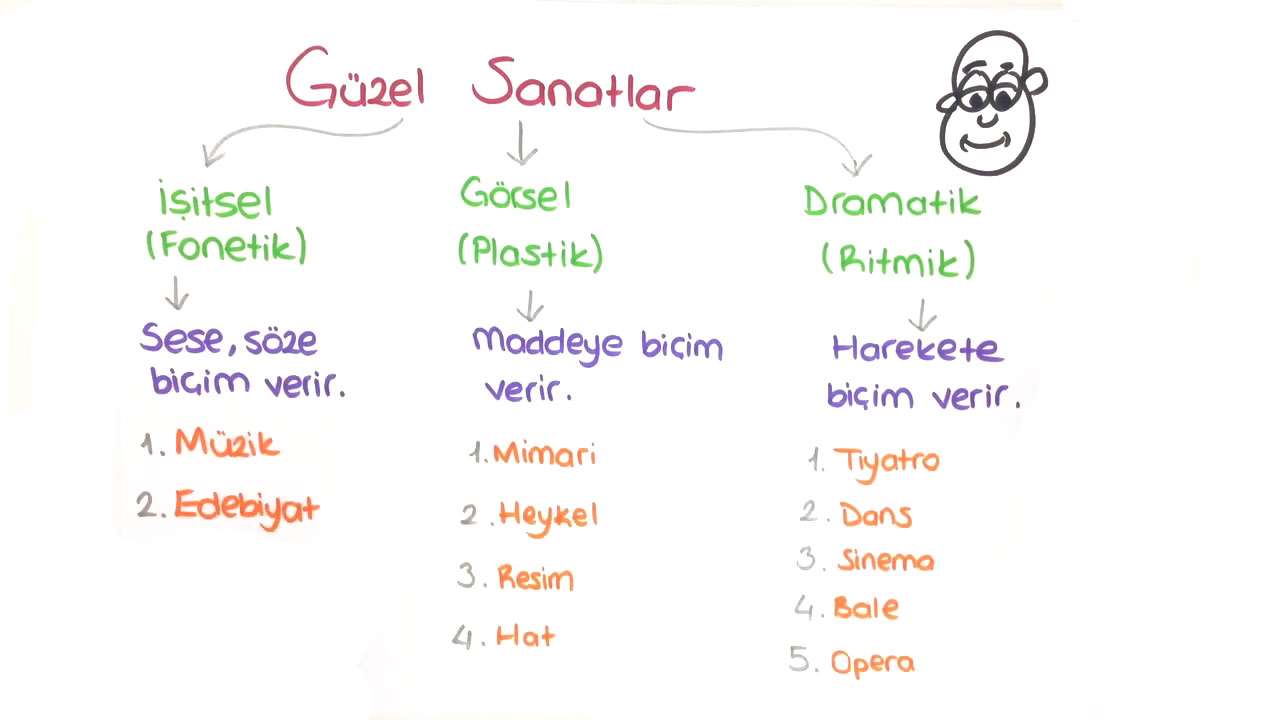 Güzel Sanatlar
İşitsel
(Fonetik)
Sese, söze
biçim verir.
1. Müzik
2. Edebiyat
Görsel
(Plastik)
Maddeye biçim
verir.
1. Mimari
2. Heykel
3. Resim
4. Hat
Dramatik
(Ritmik)
Harekete
biçim verir.
1. Tiyatro
2. Dans
3. Sinema
4. Bale
5. Opera